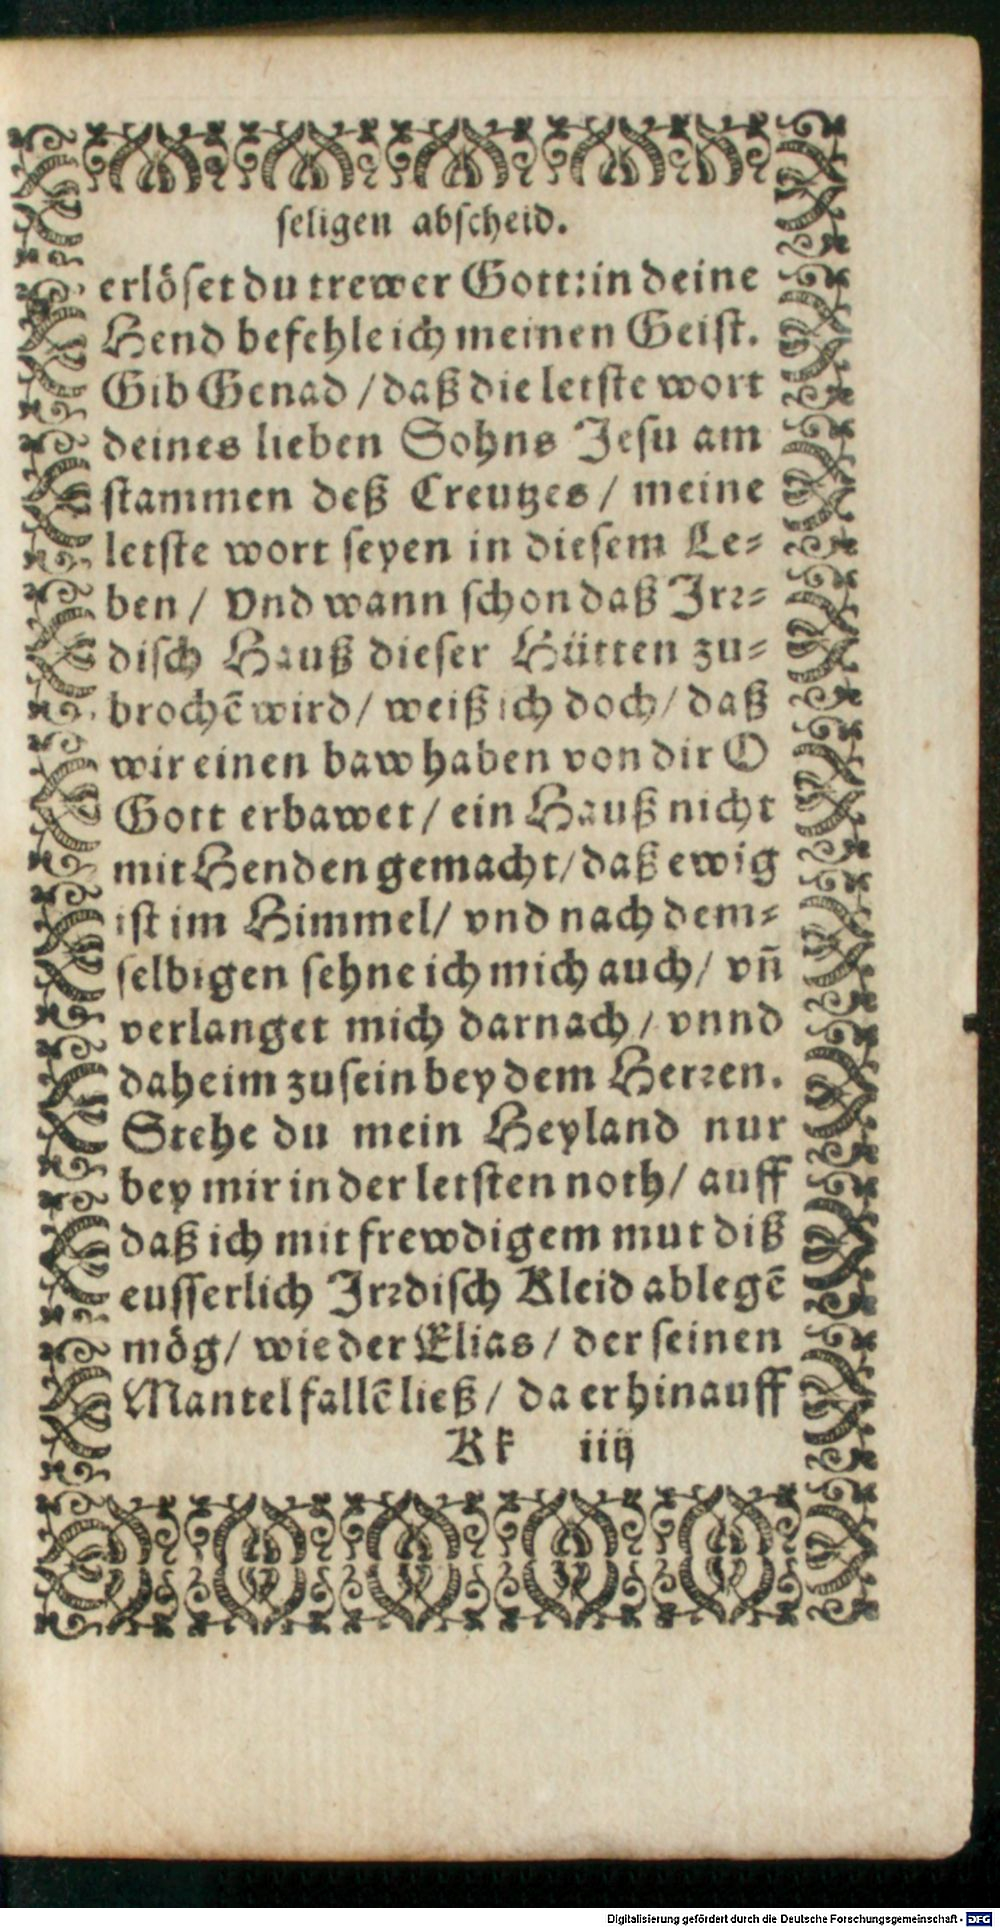 seligen abscheid.
erlöset du trewer Gott: in deine
Hend befehle ich meinen Geist.
Gib Genad / daß die letste wort
deines lieben Sohns Jesu am
stammen deß Creutzes / meine
letste wort seyen in diesem Le⸗
ben / Vnd wann schon daß Jrꝛ⸗
disch Hauß dieser Hütten zu⸗
brochē wird / weiß ich doch / daß
wir einen baw haben von dir O
Gott erbawet / ein Hauß nicht
mit Henden gemacht / daß ewig
ist im Himmel / vnd nach dem⸗
selbigen sehne ich mich auch / vñ
verlanget mich darnach / vnnd
daheim zu sein bey dem Herꝛen.
Stehe du mein Heyland nur
bey mir in der letsten noth / auff
daß ich mit frewdigem mut diß
eusserlich Jrꝛdisch Kleid ablegē
mög / wie der Elias / der seinen
Mantel fallē ließ / da er hinauff
Kk iiij
Digitalisierung gefördert durch die Deutsche Forschungsgemeinschaft - DFG